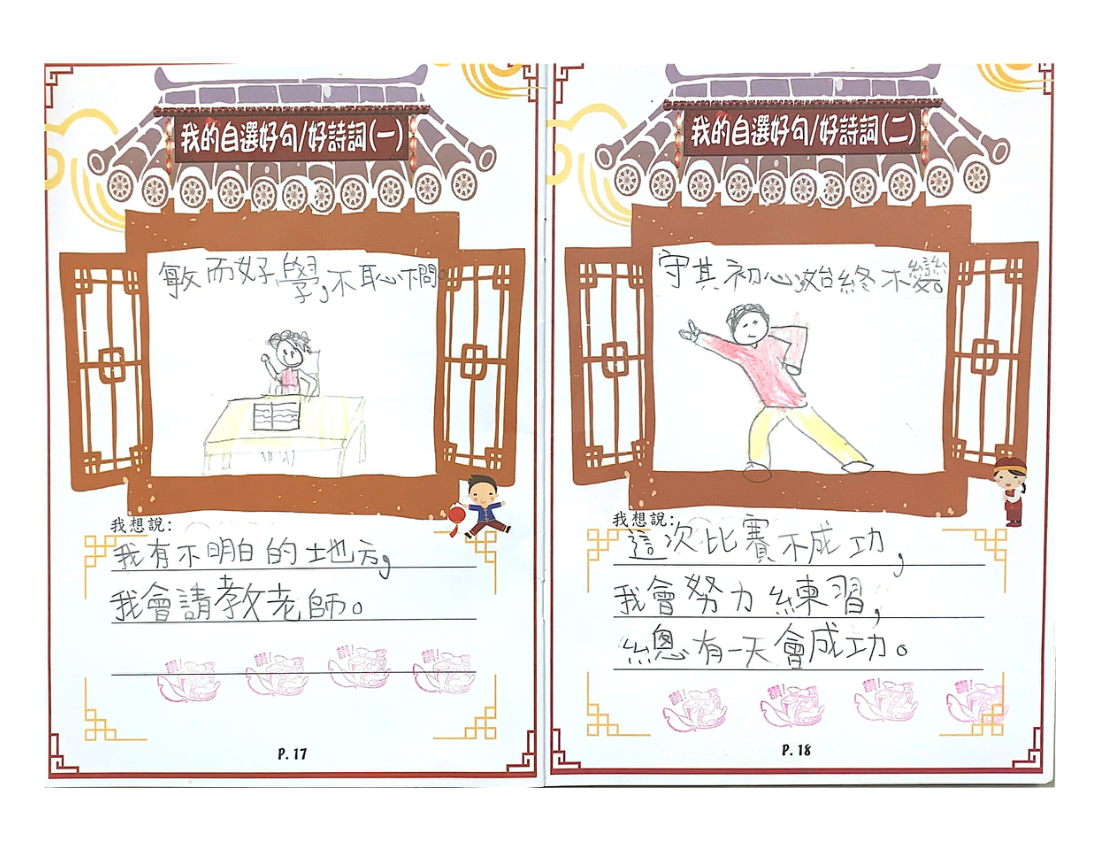 我的自選好句/好詩詞(一)
敏而好學,不恥下問。
我想說:
我有不明白的地方,
我會請教老師。
讚! 讚! 讚! 讚!
P. 17
我的自選好句/好詩詞(二)
守其初心,始終不變。
我想說:
這次比賽不成功,
我會努力練習,
總有一天會成功。
讚! 讚! 讚! 讚!
P. 18